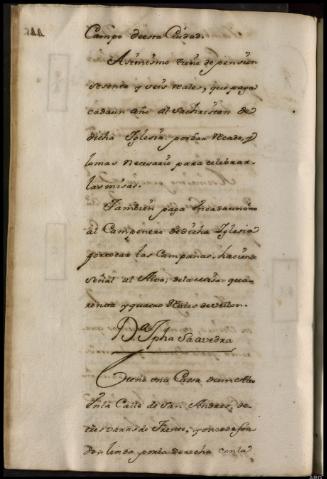 Campo de esta Ciudad.
Asimismo tiene de pension
sesenta y seis reales, que paga
cada un año al Sachristan de
dicha Iglesia por dar Recado, y
lo mas necesario para celebrar
las misas.
Tambien paga en cada un año
al Campanero de dicha Iglesia
por tocar las Campanas, haciendo
señal al Alva, quarenta
y quatro Reales de vellon.
Da. Jpha Saavedra
Tiene una Casa de un Alto
en la Calle de San Andres, de
tres varas de Frente, y once de fon
do: linda por la derecha con la